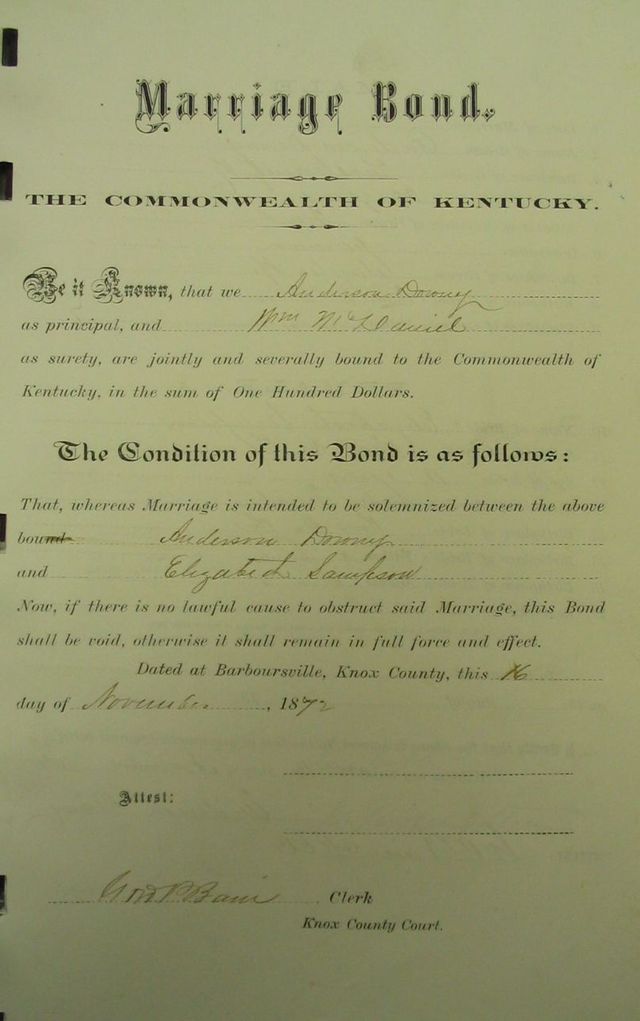 Marriage Bond.
THE COMMONWEALTH OF KENTUCKY.
Be it Known, that we Anderson Downy
as principal, and Wm McDaniel
as surety, are jointly and severally bound to the Commonwealth of
Kentucky, in the sum of One Hundred Dollars.
The Condition of this Bond is as follows:
That, whereas Marriage is intended to be solemnized between the above
bound Anderson Downy
and Elizabeth Sampson
Now, if there is no lawful cause to obstruct said Marriage, this Bond
shall be void, otherwise it shall remain in full force and effect.
Dated at Barboursville, Knox County, this 16
day of November, 1872
Attest:
Clerk
Knox County Court.